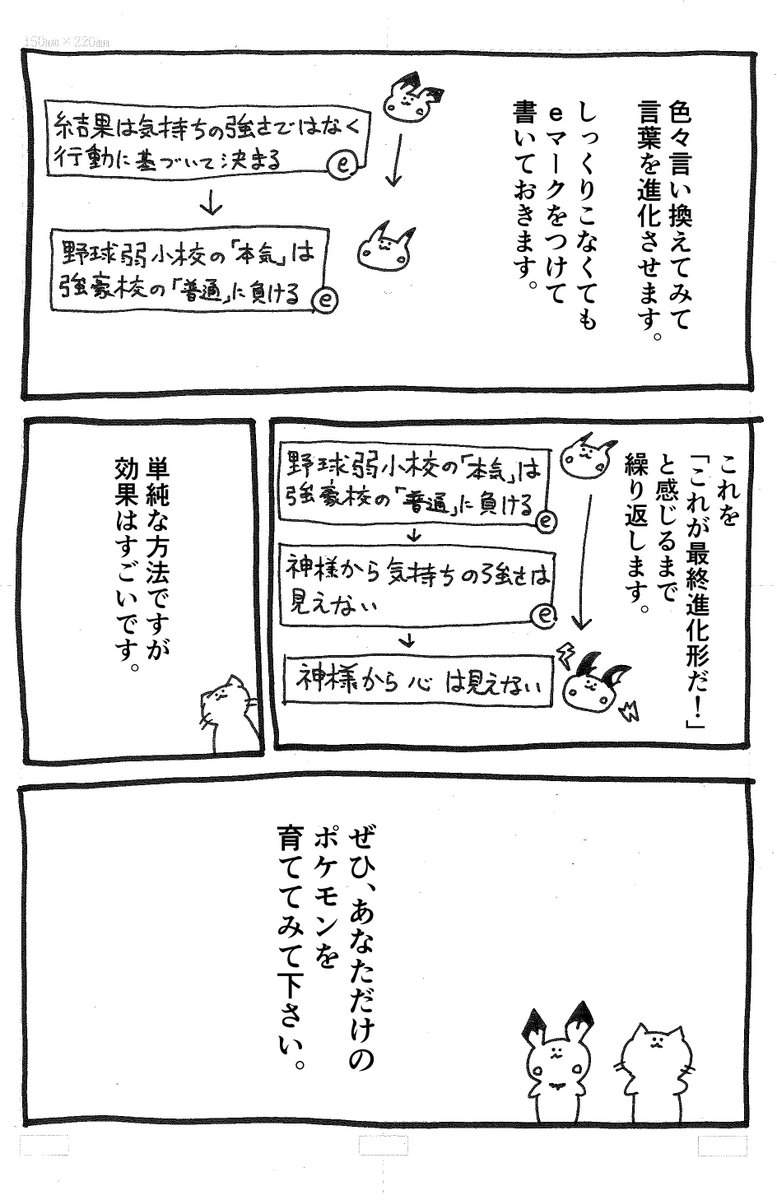 150mm×220mm
色々言い換えてみて
言葉を進化させます。
しっくりこなくても
eマークをつけて
書いておきます。
結果は気持ちの強さではなく
行動に基づいて決まる
e
野球弱小校の「本気」は
強豪校の「普通」に負ける
e
これを
「これが最終進化形だ!」
と感じるまで
繰り返します。
野球弱小校の「本気」は
強豪校の「普通」に負ける
e
神様から気持ちの強さは
見えない
e
神様から心は見えない
単純な方法ですが
効果はすごいです。
ぜひ、あなただけの
ポケモンを
育ててみて下さい。